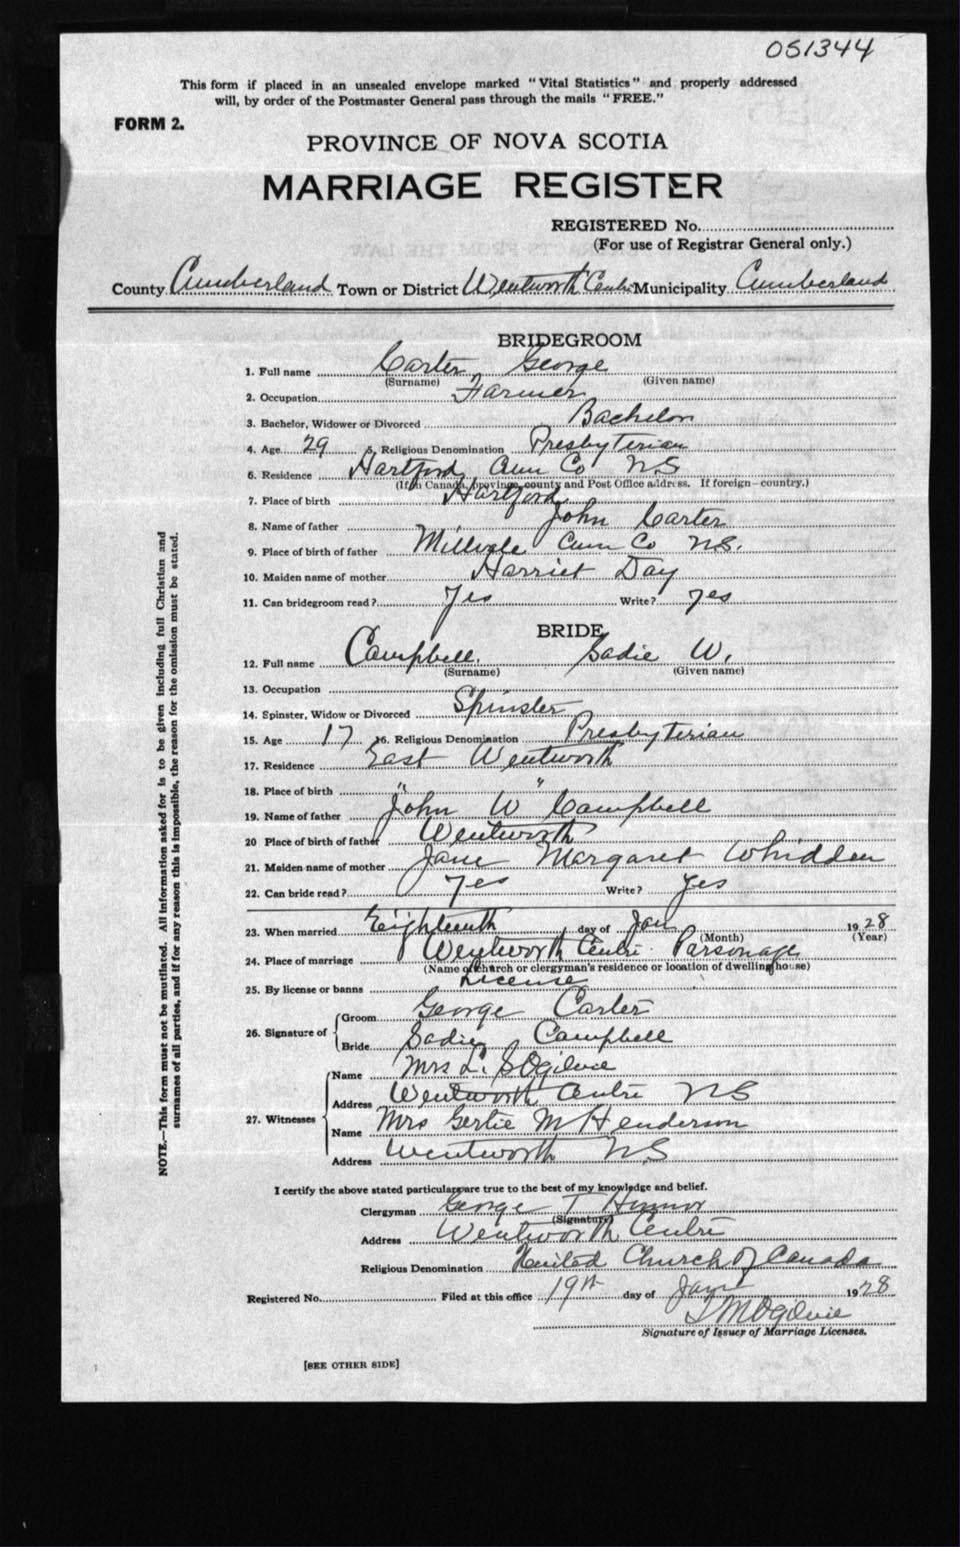 051344
This form if placed in an unsealed envelope marked "Vital Statistics" and properly addressed
will, by order of the Postmaster General pass through the mails "FREE."
FORM 2.
PROVINCE OF NOVA SCOTIA
MARRIAGE REGISTER
REGISTERED No.
(For use of Registrar General only.)
County Cumberland Town or District Wentworth Centre Municipality Cumberland
BRIDEGROOM
1. Full name Carter George
(Surname) (Given name)
2. Occupation Farmer
3. Bachelor, Widower or Divorced Bachelor
4. Age 29 5. Religious Denomination Presbyterian
6. Residence Hartford Cum Co NS
(If in Canada, province, county and Post Office address. If foreign—country.)
7. Place of birth Hartford
8. Name of father John Carter
9. Place of birth of father Millvale Cum Co NS.
10. Maiden name of mother Harriet Day
11. Can bridegroom read? Yes Write? yes
BRIDE
12. Full name Campbell, Sadie W.
(Surname) (Given name)
13. Occupation
14. Spinster, Widow or Divorced Spinster
15. Age 17 16. Religious Denomination Presbyterian
17. Residence East Wentworth
18. Place of birth " "
19. Name of father John W Campbell
20 Place of birth of father Wentworth
21. Maiden name of mother Jane Margaret Whidden
22. Can bride read? Yes Write? Yes
23. When married Eighteenth day of Jan 1928
(Month) (Year)
24. Place of marriage Wentworth Centre Parsonage
(Name of church or clergyman's residence or location of dwelling house)
25. By license or banns License
26. Signature of Groom George Carter
Bride Sadie Campbell
27. Witnesses Name Mrs L. S Ogilvie
Address Wentworth Centre NS
Name Mrs Gertie M Henderson
Address Wentworth NS
I certify the above stated particulars are true to the best of my knowledge and belief.
Clergyman George T
(Signature)
Address Wentworth Centre
Religious Denomination United Church of Canada
Registered No. Filed at this office 19th day of Jany 1928
Ogilvie
Signature of Issuer of Marriage Licenses.
[SEE OTHER SIDE]
NOTE.—This form must not be mutilated. All information asked for is to be given including full Christian and
surnames of all parties, and if for any reason this is impossible, the reason for the omission must be stated.